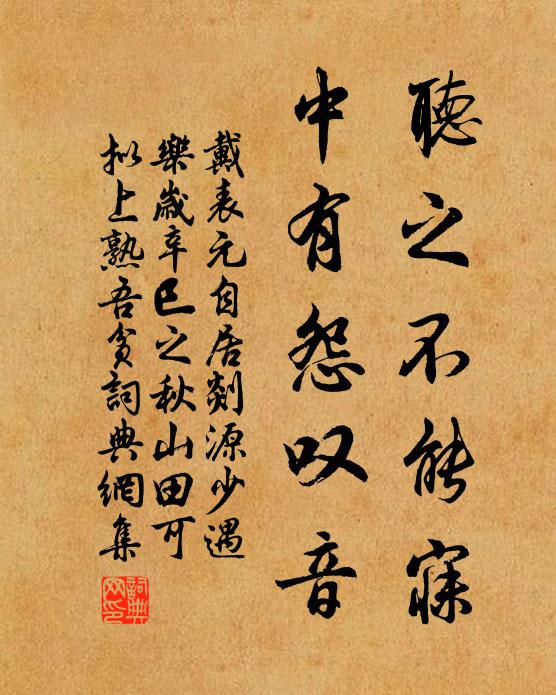 聽之不能寐
中有怨叹音
戴表元自居剡源少遇
樂歲辛巳之秋山田可
拟上熟吾貧詞典網集
詞典
网印